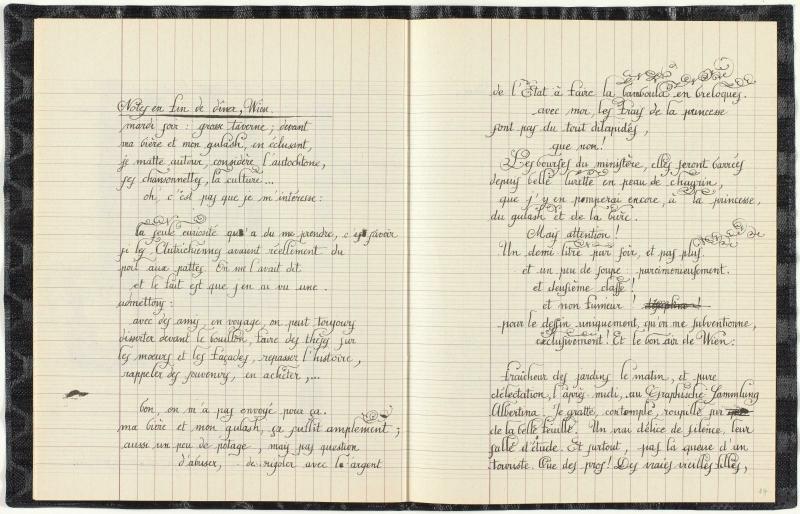 Notes en fin de dîner, Wien.
mardi soir : grosse taverne ; devant
ma bière et mon gulash, en éclusant,
je matte autour, considère l'autochtone,
ses chansonnettes, la culture...
oh, c'est pas que je m'intéresse :
la seule curiosité qu'a du me prendre, c'est savoir
si les Autrichiennes avaient réellement du
poil aux pattes. On me l'avait dit
et le fait est que j'en ai vu une.
admettons :
avec des amis, en voyage, on peut toujours
disserter devant le bouillon, faire des thèses sur
les moeurs et les façades, repasser l'histoire,
rappeler des souvenirs, en acheter,...
bon, on m'a pas envoyé pour ça.
ma bière et mon gulash, ça suffit amplement ;
aussi un peu de potage, mais pas question
d'abuser, de rigoler avec l'argent
de l'État à faire la bamboula en breloques.
avec moi, les frais de la princesse
sont pas du tout dilapidés,
que non !
Les bourses du ministère, elles seront barrées
depuis belle lurette en peau de chagrin,
que j'y en pomperai encore, à la princesse,
du gulash et de la bière.
Mais attention !
Un demi litre par soir, et pas plus.
et un peu de soupe : parcimonieusement.
et deuxième classe !
et non fumeur !
pour le dessin uniquement, qu'on me subventionne,
exclusivement ! Et le bon air de Wien :
Fraîcheur des jardins le matin, et pure
délectation, l'après midi, au Graphische Sammlung
Albertina. Je gratte, contemple, roupille sur
de la belle feuille. Un vrai délice de silence, leur
salle d'étude. Et surtout, pas la queue d'un
touriste. Que des pros ! Des vraies vieilles filles,